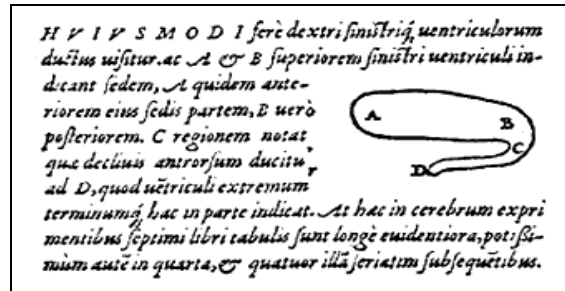 H V I V S M O D I ferè dextri siniſtriq́; uentriculorum
ductus uiſitur. ac A & B ſuperiorem ſiniſtri uentriculi in-
dicant ſedem, A quidem ante-
riorem eius ſedis partem, B uerò
poſteriorem. C regionem notat
quæ decliuis antrorſum ducitur
ad D, quod uẽtriculi extremum
terminumq́; hac in parte indicat. At hæc in cerebrum expri
mentibus ſeptimi libri tabulis ſunt longè euidentiora, potißi-
mùm autẽ in quarta, & quatuor illã ſeriatim ſubſequẽtibus.
A
B
C
D